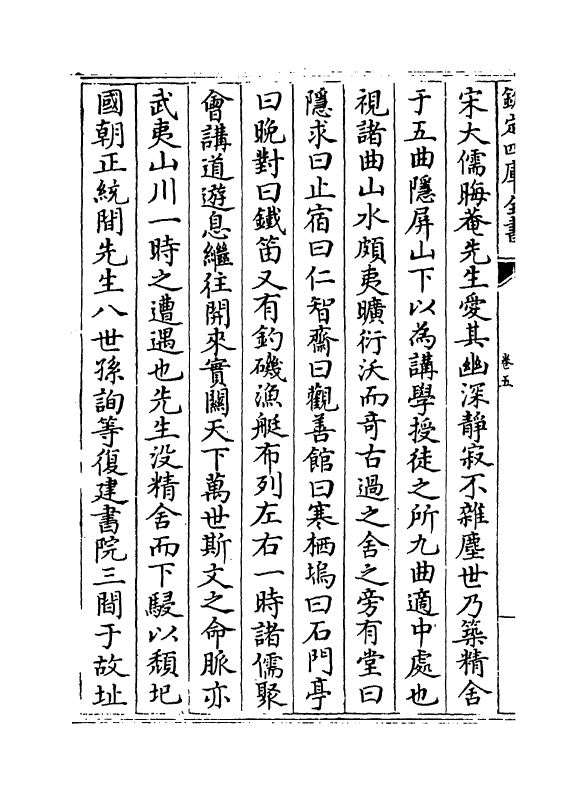 欽定四庫全書
卷五
宋大儒晦菴先生愛其幽深靜寂不雜塵世乃築精舍
于五曲隱屏山下以為講學授徒之所九曲適中處也
視諸曲山水頗夷曠衍沃而奇古過之舍之旁有堂曰
隱求曰止宿曰仁智齋曰觀善館曰寒栖塢曰石門亭
曰晚對曰鐵笛又有釣磯漁艇布列左右一時諸儒聚
會講道遊息繼往開來實關天下萬世斯文之命脈亦
武夷山川一時之遭遇也先生没精舍而下駸以頽圯
國朝正統間先生八世孫詢等復建書院三間于故址